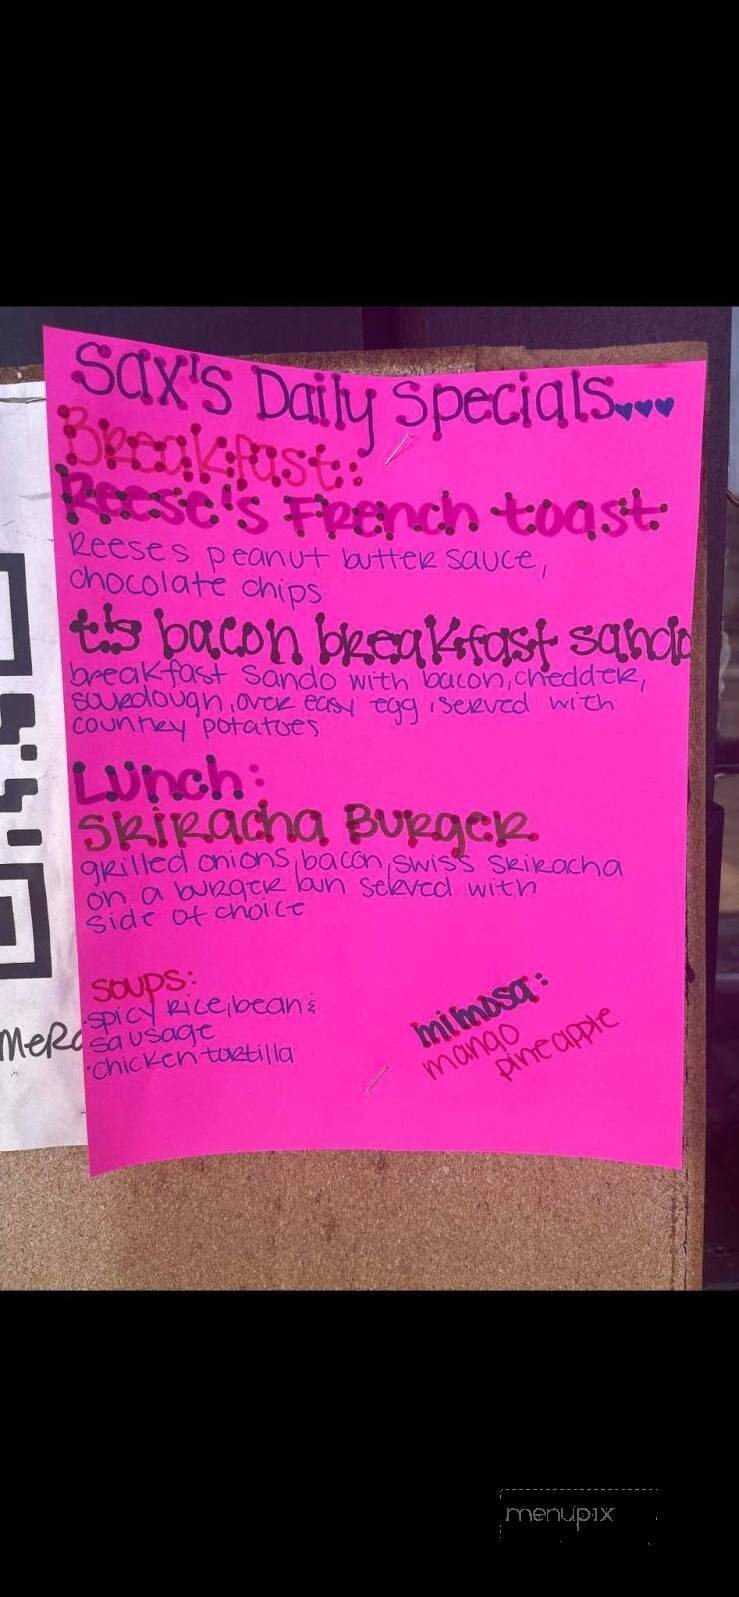 Sax's Daily Specials...♥♥♥
Breakfast:
Reese's French toast
Reeses peanut butter sauce,
chocolate chips
t's bacon breakfast sando
breakfast sando with bacon, chedder,
sourdough, over easy egg, served with
country potatoes
Lunch:
SRIRacha BURgeR
grilled onions, bacon, swiss sriracha
on a burger bun served with
side of choice
soups:
·spicy rice, bean &
sausage
·chicken tortilla
mimosa:
mango
pineapple
MeRc
menupix